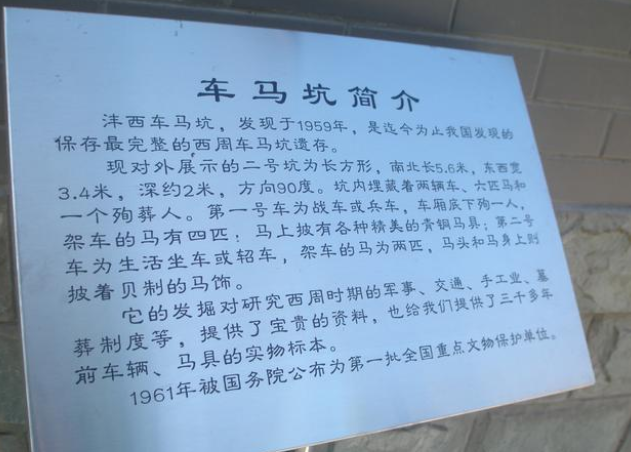 车马坑简介
沣西车马坑，发现于1959年，是迄今为止我国发现的
保存最完整的西周车马坑遗存。
现对外展示的二号坑为长方形，南北长5.6米，东西宽
3.4米，深约2米，方向90度。坑内埋藏着两辆车、六匹马和
一个殉葬人。第一号车为战车或兵车，车厢底下殉一人，
架车的马有四匹；马上披有各种精美的青铜马具；第二号
车为生活坐车或轺车，架车的马为两匹，马头和马身上则
披着贝制的马饰。
它的发掘对研究西周时期的军事、交通、手工业、墓
葬制度等，提供了宝贵的资料，也给我们提供了三千多年
前车辆、马具的实物标本。
1961年被国务院公布为第一批全国重点文物保护单位。